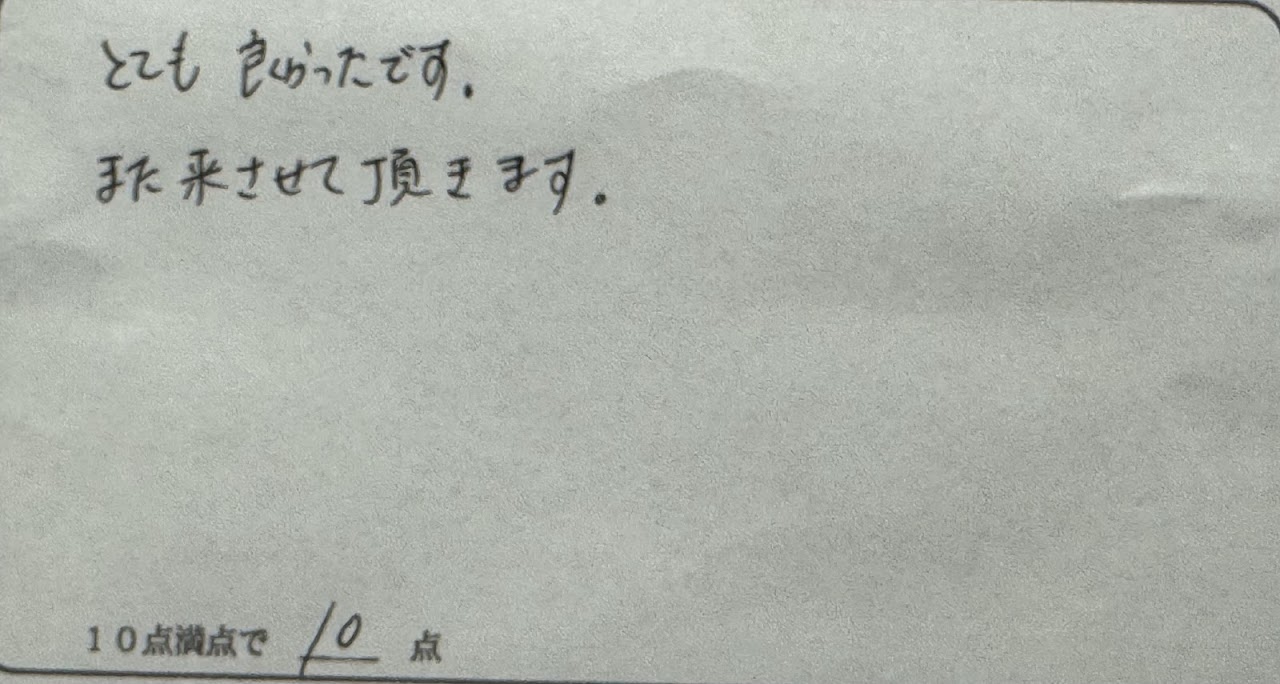 とても 良かったです.
また来させて頂きます.
10点満点で 10 点